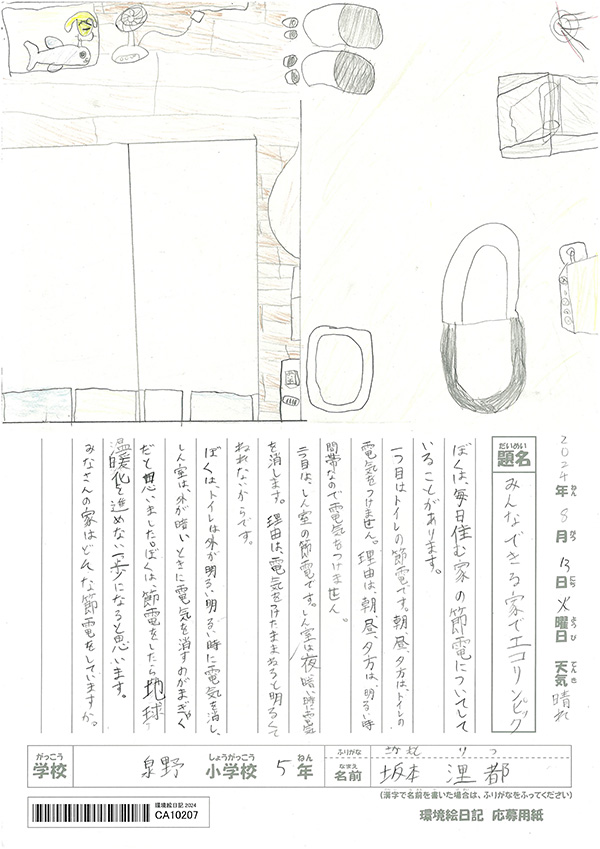 2024年8月13日火曜日 天気晴れ
ねん がつ にち ようび てんき
だいめい
題名
みんなできる家でエコリンピック
ぼくは、毎日住む家の節電についてして
いることがあります。
一つ目はトイレの節電です。朝、昼、夕方は、トイレの
電気をつけません。理由は、朝、昼、夕方は、明るい時
間帯なので電気をつけません。
二つ目は、しん室の節電です。しん室は夜、暗い時に電気
を消します。理由は、電気をつけたままねると明るくて
ねれないからです。
ぼくは、トイレは外が明るい明るい時に電気を消し、
しん室は外が暗いときに電気を消すのがまぎゃく
だと思いました。ぼくは、節電をしたら地球
温暖化を進めない一歩になると思います。
みなさんの家はどんな節電をしていますか。
がっこう しょうがっこう ねん
学校 泉野 小学校 5年
ふりがな
なまえ
名前 坂本 浬都
(漢字で名前を書いた場合は、ふりがなをふってください)
環境絵日記 2024
CA10207
環境絵日記 応募用紙